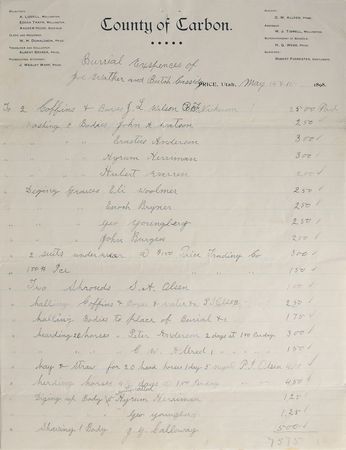 County of Carbon.
A. LIDDELL, WELLINGTON
EUGENE TRAVIS, WELLINGTON
CLERK AND RECORDER
W. H. DONALDSON, PRICE
TREASURER AND COLLECTOR
ALBERT BRYNER, PRICE
PROSECUTING ATTORNEY
J. WESLEY WARF, PRICE
C. W. ALLRED, PRICE
ASSESSOR
W. J. TIDWELL, WELLINGTON
SUPERINTENDENT OF SCHOOLS
H. G. WEBB, PRICE
SURVEYOR
ROBERT FORRESTER, CASTLEGATE
Burrial Exspences of
Joe Walker and Butch Cassidy
PRICE, UTAH, May 14 & 15 1898.
To 2 Coffins & Boxes J. L. Wilson 25 00 Paid
Washing 2 Bodies John A Watson 2 50
" " Erastus Anderson 3 00
" " Hyrum Herriman 3 00
" " Hubert Warren 2 00
Diging Graves Eli Woolmer 2 50
" " Enoch Bryner 2 50
" " Geo Youngberg 2 50
" " John Burgess 2 50
" 2 suits underwear @ $1.50 Price Trading Co 3 00
" 150 lb Ice 1 50
" Two Shrouds S. A. Olsen 1 00
" halling Coffins & Boxes & water & 2 50
" halling Bodies to place of Burial & 1 75
" hearding 26 horses Peter Anderson 2 days at 1.50 Per day 3 00
" " C. W. Allred 1 " " 1 50
" hay & straw for 20 head horses 1 day 5 night P. I. Olsen
" herding horses 4 1/2 days @ 1.00 Per day 4 50
Diging up Body Hyrum Herriman 1 25
" " Geo Youngberg 1.25
" Shaving 1 Body J. G. Callaway 5 00
75 75